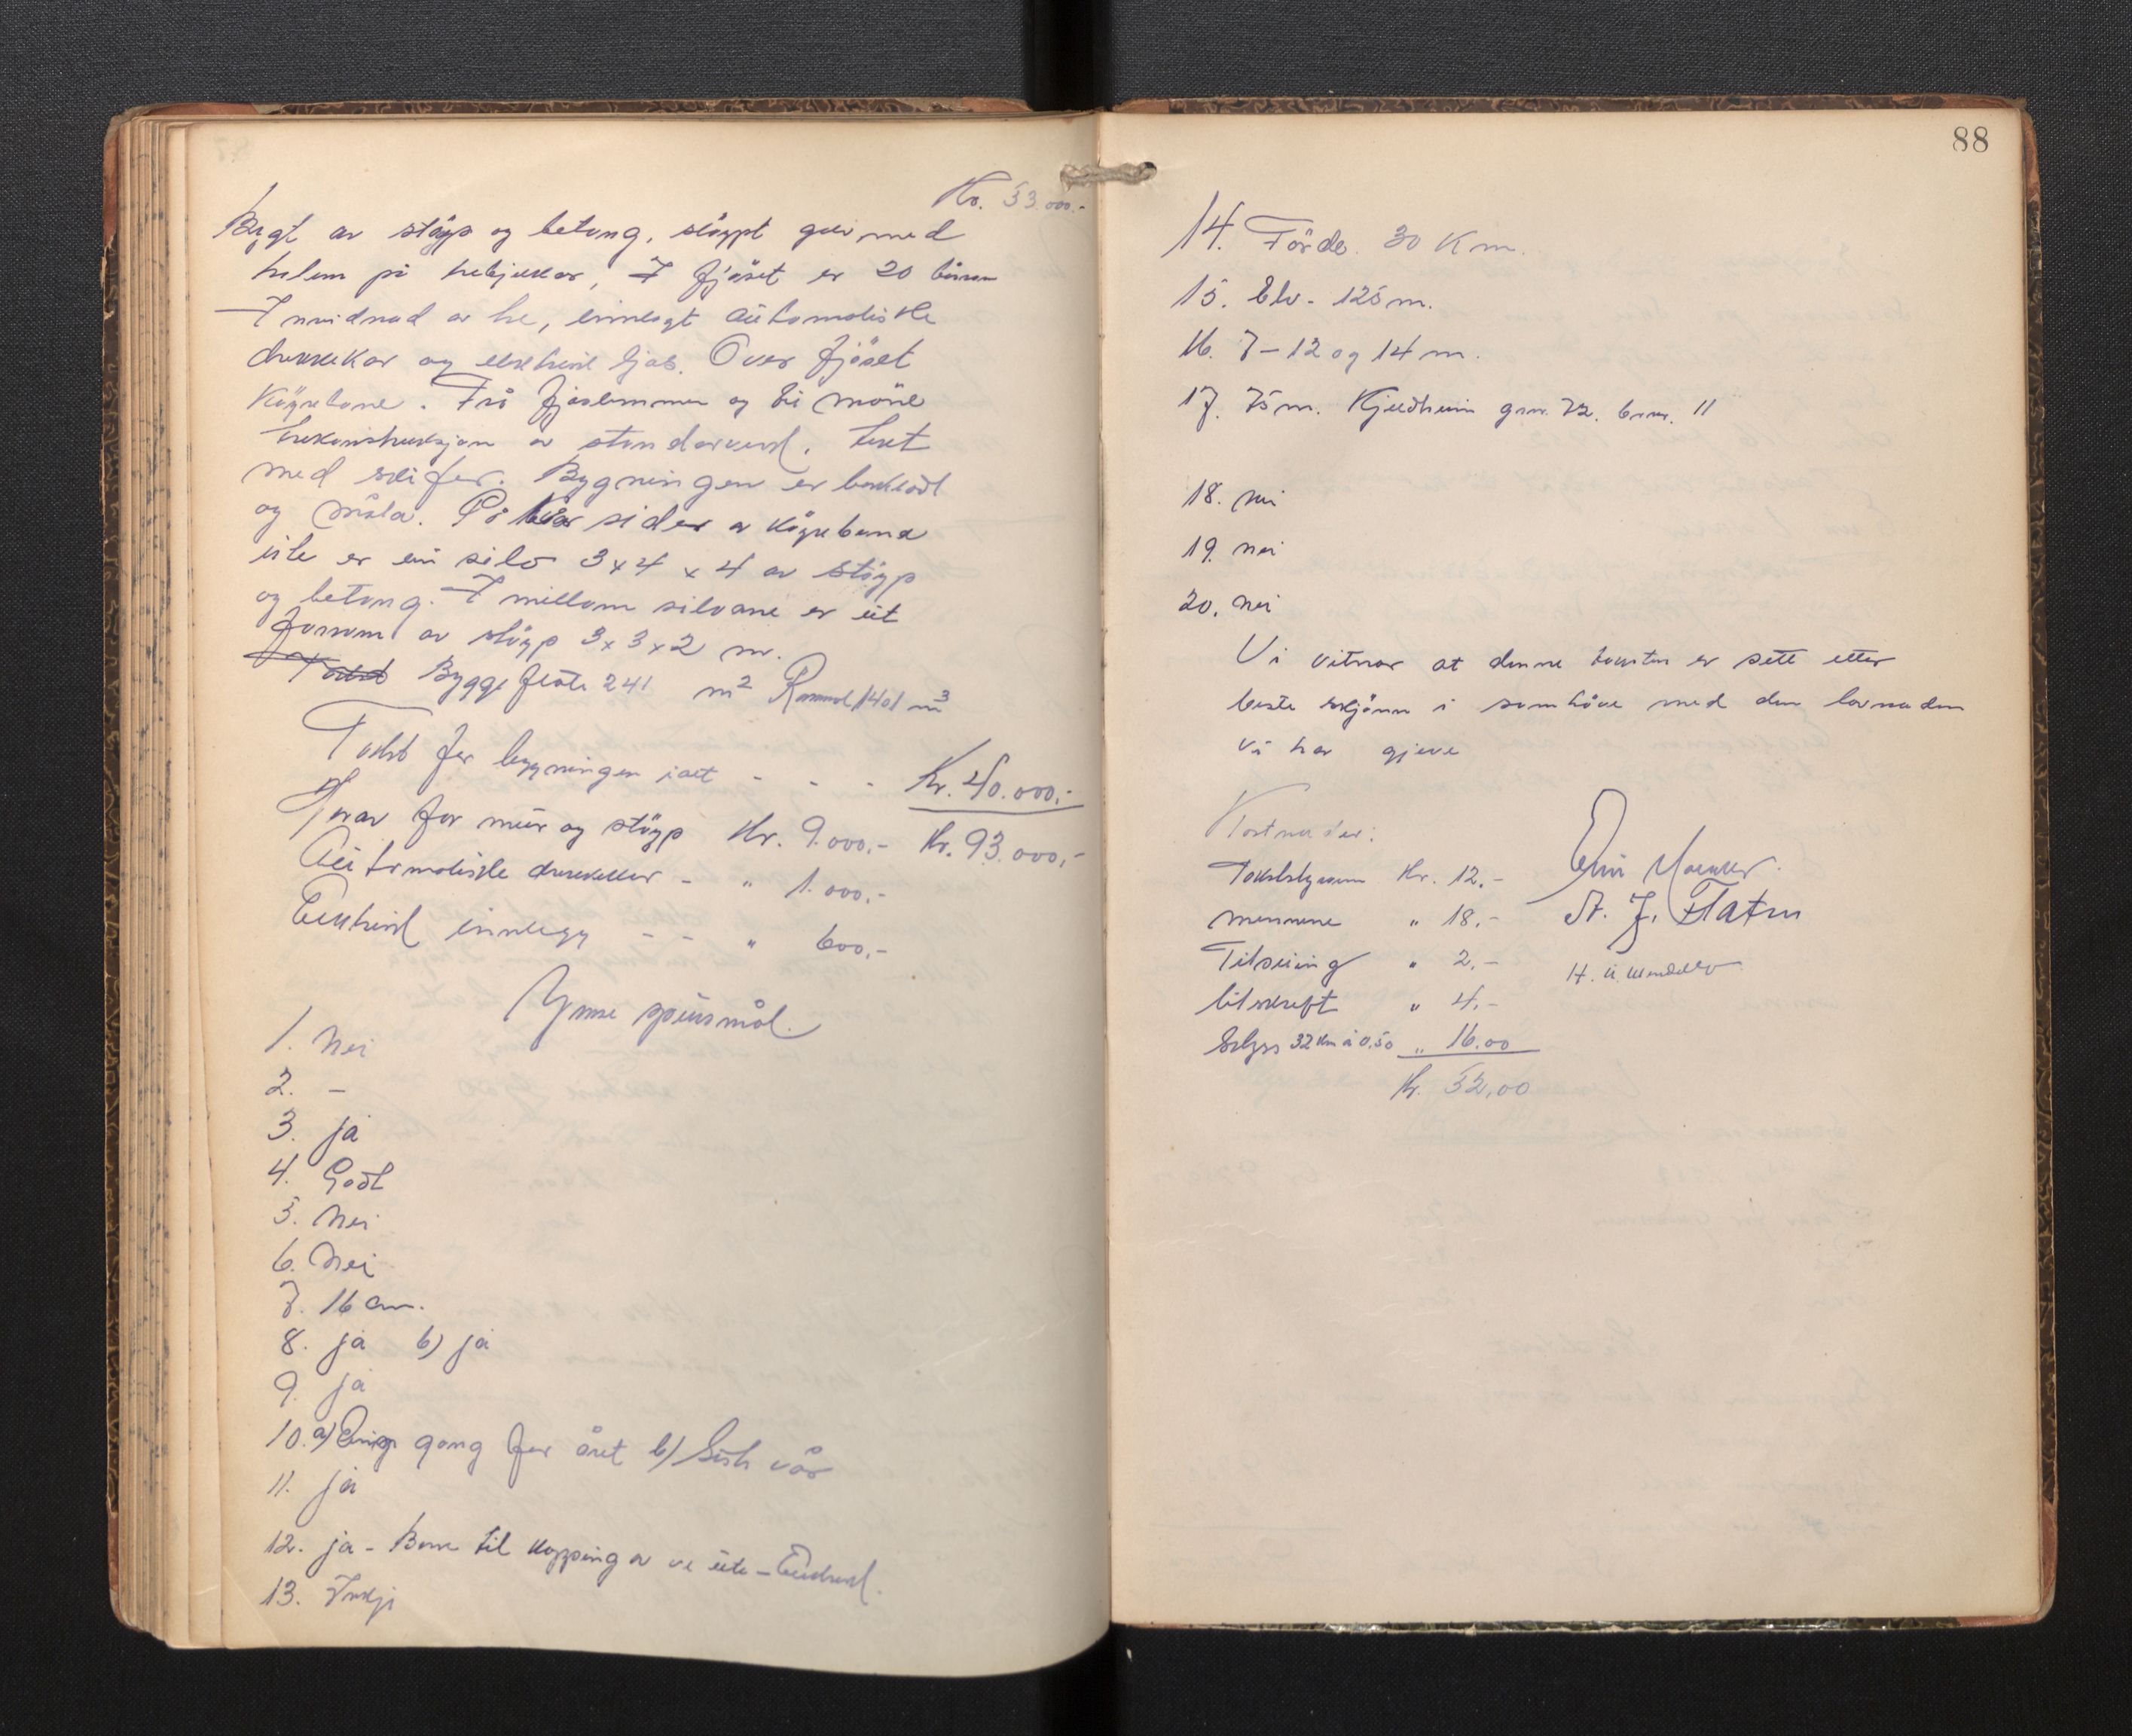 Kr. 53.000.-
Bygt av støyp og betong, støypt golv med
holum på trebjelkar, I fjøset er 20 båsar
Innreidnad av tre, innlagt automatiske
drikkekar og elektrisk ljos. Over fjøset
köyrebane. Frå fjøslemmen og til møne
trekonstruksjon av standarverk. Tekt
med skifer. Bygningen er bordkledt
og måla. På kvar sider av köyrebana
ute er ein silo 3 x 4 x 4 av støyp
og betong. I millom siloane er eit
forrom av støyp 3 x 3 x 2 m.
Takst Byggeflate 241 m² Rommål 1401 m³
Takst for bygningen i alt - - - Kr. 40.000,-
Herav for mur og støyp Kr. 9.000.- Kr. 93.000,-
Automatiske drikkekar - " 1.000,-
Elektrisk innlegg - - " 600,-
Ymse spursmål.
1. Nei
2. -
3. ja
4. Godt
5. Nei
6. Nei
7. 16 cm.
8. ja b) ja
9. ja
10. a) Ein gong for året b) Siste vår
11. ja
12. ja - Berre til kapping av ve ute - Elektrisk.
13. Inkje
88
14. Förde 30 Km.
15. Elv - 125 m.
16. 7 - 12 og 14 m.
17. 75 m. Kjeldheim gnr. 72. bnr. 11
18. nei
19. nei
20. nei
Vi vitnar at denne taksten er sett etter
beste skjönn i samhöve med den lovnaden
vi har gjeve
Kostnader:
Takststyraren Kr. 12.-
mennene " 18.-
Tilseiing " 2.-
Utskrift " 4.-
Skyss 32 Km à 0.50 " 16.00
Kr. 52,00
A. J. Flatin